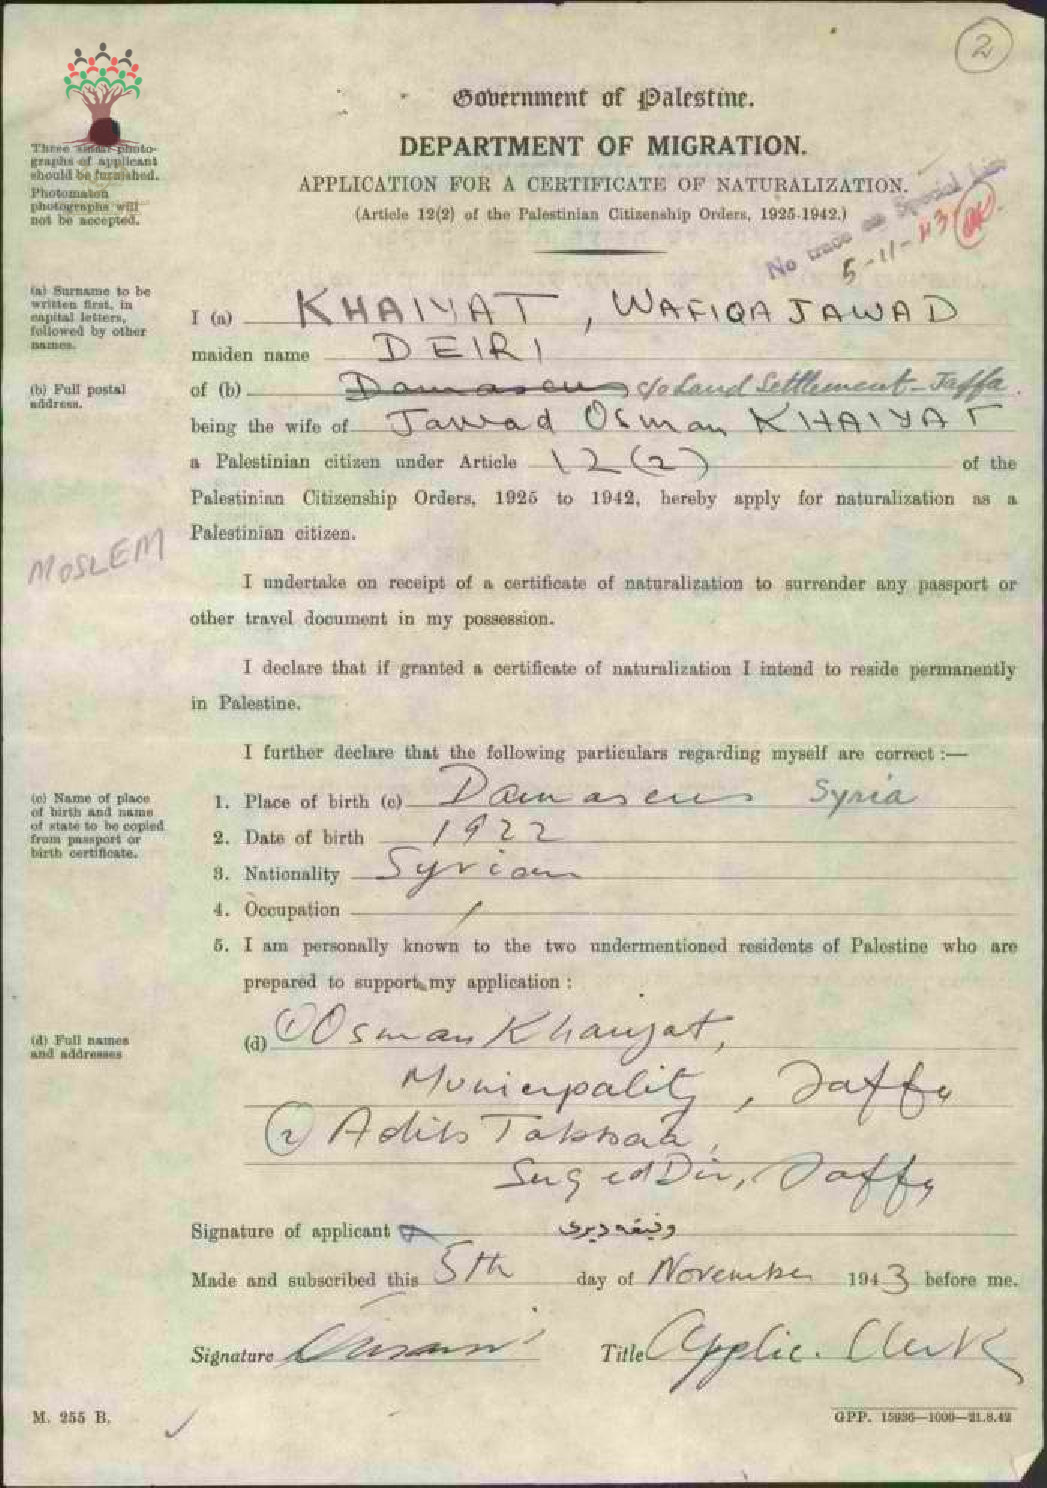 2
Government of Palestine.
DEPARTMENT OF MIGRATION.
APPLICATION FOR A CERTIFICATE OF NATURALIZATION.
(Article 12(2) of the Palestinian Citizenship Orders, 1925-1942.)
No trace on Special List
5-11-43
Three photo-
graphs of applicant
should be furnished.
Photomaton
photographs will
not be accepted.
(a) Surname to be
written first, in
capital letters,
followed by other
names.
I (a) KHAIYAT, WAFIQA JAWAD
maiden name DEIRI
(b) Full postal
address.
of (b) Damascus c/o Land Settlement - Jaffa.
being the wife of Jawad Osman KHAIYAT
a Palestinian citizen under Article 12(2) of the
Palestinian Citizenship Orders, 1925 to 1942, hereby apply for naturalization as a
Palestinian citizen.
MOSLEM
I undertake on receipt of a certificate of naturalization to surrender any passport or
other travel document in my possession.
I declare that if granted a certificate of naturalization I intend to reside permanently
in Palestine.
I further declare that the following particulars regarding myself are correct :—
(c) Name of place
of birth and name
of state to be copied
from passport or
birth certificate.
1. Place of birth (c) Damascus Syria
2. Date of birth 1922
3. Nationality Syrian
4. Occupation /
5. I am personally known to the two undermentioned residents of Palestine who are
prepared to support my application :
(d) Full names
and addresses
(d) (1) Osman Khaiyat,
Municipality, Jaffa
(2) Adib
Jaffa
Signature of applicant وفيقه ديري
Made and subscribed this 5th day of November 1943 before me.
Signature Title Applic. Clerk
M. 255 B.
GPP. 15936—1000—21.8.42